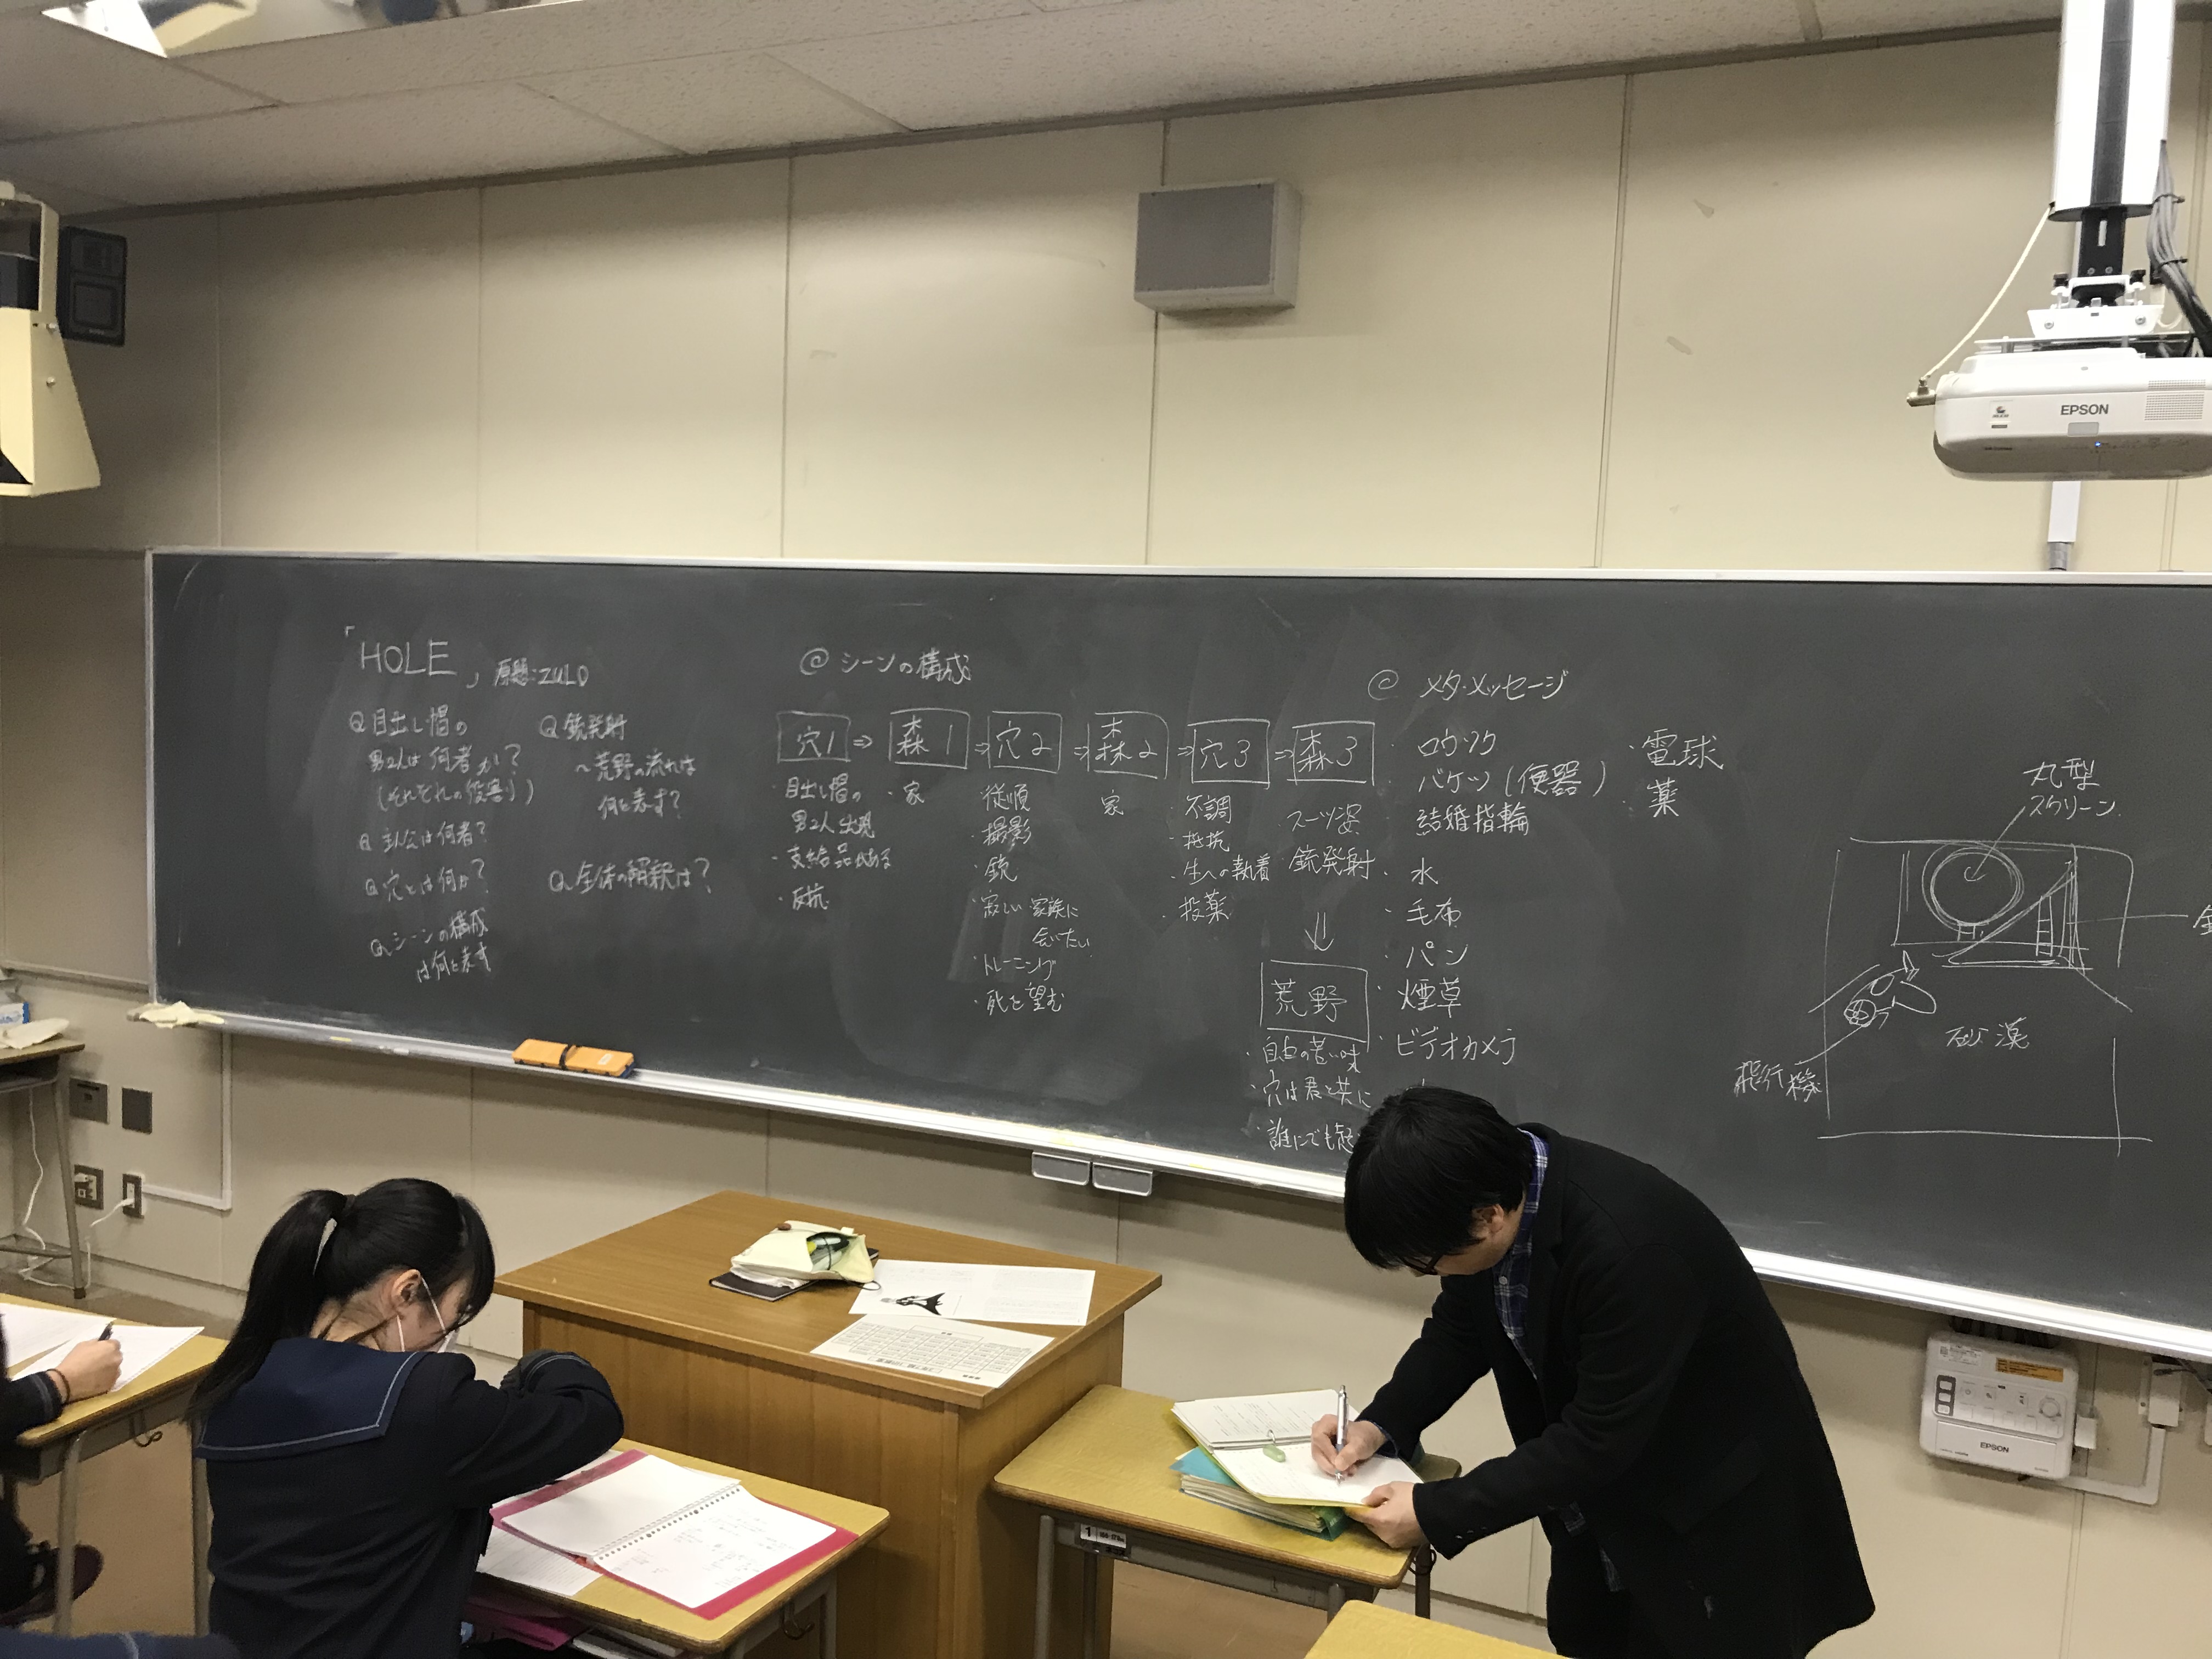 「HOLE」 原題:ZULO
Q 目出し帽の
男2人は何者か?
(それぞれの役割)
Q 主人公は何者?
Q 穴とは何か?
Q シーンの構成
は何を表す
Q 銃発射
~荒野の流れは
何を表す?
Q 全体の解釈は?
@ シーンの構成
穴1 ⇒ 森1 ⇒ 穴2 ⇒ 森2 ⇒ 穴3 ⇒ 森3
・目出し帽の
男2人出現
・支給品がある
・反抗
・家
従順
・撮影
・銃
・寂しい 家族に
会いたい
・トレーニング
・死を望む
家
不調
・抵抗
・生への執着
・投薬
スーツ姿
銃発射
⇓
荒野
・自由の苦い味
・穴は君と共に
・誰にでも起
@ メタ・メッセージ
・ロウソク
・バケツ(便器)
・結婚指輪
・水
・毛布
・パン
・煙草
・ビデオカメラ
・電球
・薬
丸型
スクリーン
砂漠
飛行機
EPSON
EPSON
1